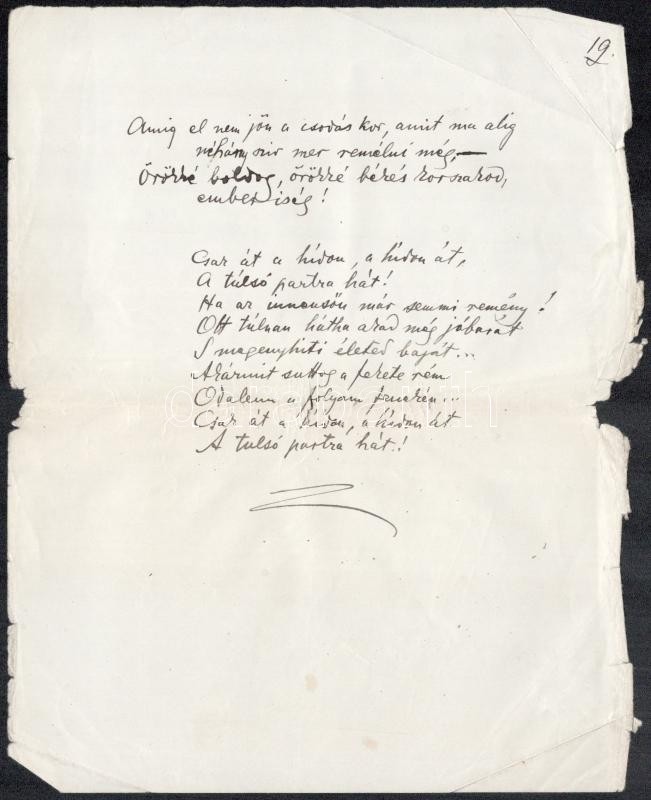 19.
Amig el nem jön a csodás kor, amit ma alig
néhány szív mer remélni még, —
Örökké boldog, örökké békés korszakod,
emberiség!
Csak át a hídon, a hídon át,
A túlsó partra hát!
Ha az innensőn már semmi remény!
Ott túlnan hátha akad még jóbarát
S megenyhíti életed baját...
Akármit suttog a fekete rém
Odalenn a folyam fenekén...
Csak át a hídon, a hídon át
A tulsó partra hát!